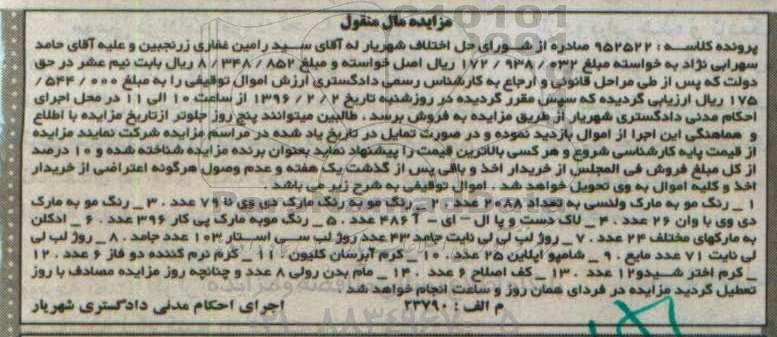 مزایده مال منقول
پرونده کلاسه : ۹۵۲۵۲۲ صادره از شورای حل اختلاف شهریار له آقای سید رامین غفاری زرنجبین و علیه آقای حامد
سهرابی نژاد به خواسته مبلغ ۰۳۲ / ۹۳۸ / ۱۷۲ ریال اصل خواسته و مبلغ ۸۵۲ / ۳۴۸ / ۸ ریال بابت نیم عشر در حق
دولت که پس از طی مراحل قانونی و ارجاع به کارشناس رسمی دادگستری ارزش اموال توقیفی را به مبلغ ۰۰۰ / ۵۴۴ /
۱۷۵ ریال ارزیابی گردیده که سپس مقرر گردیده در روزشنبه تاریخ ۲ / ۲ / ۱۳۹۶ از ساعت ۱۰ الی ۱۱ در محل اجرای
احکام مدنی دادگستری شهریار از طریق مزایده به فروش برسد . طالبین میتوانند پنج روز جلوتر ازتاریخ مزایده با اطلاع
و هماهنگی این اجرا از اموال بازدید نموده و در صورت تمایل در تاریخ یاد شده در مراسم مزایده شرکت نمایند مزایده
از قیمت پایه کارشناسی شروع و هر کسی بالاترین قیمت را پیشنهاد نماید بعنوان برنده مزایده شناخته شده و ۱۰ درصد
از کل مبلغ فروش فی المجلس از خریدار اخذ و باقی پس از گذشت یک هفته و عدم وصول هرگونه اعتراضی از خریدار
اخذ و کلیه اموال به وی تحویل خواهد شد . اموال توقیفی به شرح زیر می باشد .
۱ _ رنگ مو به مارک ولنسی به تعداد ۲۰۸۸ عدد . ۲ _ رنگ مو به رنگ مارک دی وی نا ۷۹ عدد . ۳ _ رنگ مو به مارک
دی وی با وان ۲۶ عدد . ۴ _ لاک دست و پا ال – ای – آ ۴۸۶ عدد . ۵ _ رنگ موبه مارک پی کار ۳۹۶ عدد . ۶ _ ادکلن
به مارکهای مختلف ۲۴ عدد . ۷ _ روژ لب لی لی نایت جامد ۴۳ عدد روژ لب سی استار ۱۰۳ عدد جامد . ۸ _ روژ لب لی
لی نایت ۷۱ عدد مایع . ۹ _ شامپو اپلاین ۲۵ عدد . ۱۰ _ کرم آبرسان کلیون . ۱۱ _ کرم نرم کننده دو فاز ۶ عدد . ۱۲
_ کرم اختر شیدو۱۲ عدد . ۱۳ _ کف اصلاح ۶ عدد . ۱۴ _ مام بدن رولی ۸ عدد و چنانچه روز مزایده مصادف با روز
تعطیل گردید مزایده در فردای همان روز و ساعت انجام خواهد شد .
م الف : ۲۳۷۹۰ اجرای احکام مدنی دادگستری شهریار